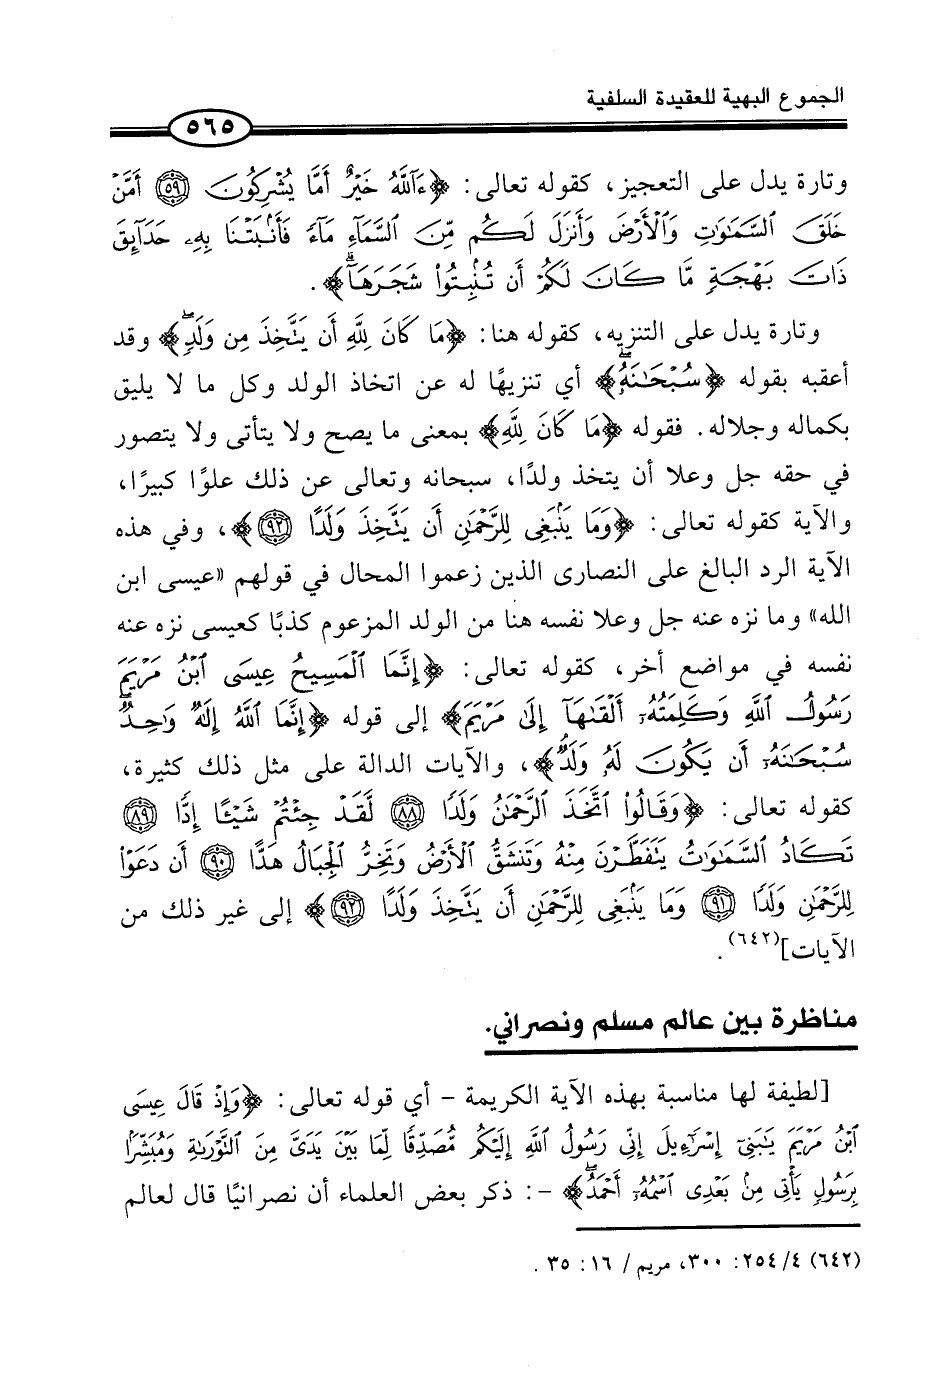 الجموع البهية للعقيدة السلفية
٥٦٥
وتارة يدل على التعجيز، كقوله تعالى: ﴿ءَآللَّهُ خَيْرٌ أَمَّا يُشْرِكُونَ ٥٩ أَمَّنْ
خَلَقَ ٱلسَّمَٰوَٰتِ وَٱلْأَرْضَ وَأَنزَلَ لَكُم مِّنَ ٱلسَّمَآءِ مَآءً فَأَنۢبَتْنَا بِهِۦ حَدَآئِقَ
ذَاتَ بَهْجَةٍ مَّا كَانَ لَكُمْ أَن تُنۢبِتُوا۟ شَجَرَهَآ﴾.
وتارة يدل على التنزيه، كقوله هنا: ﴿مَا كَانَ لِلَّهِ أَن يَتَّخِذَ مِن وَلَدٍ﴾ وقد
أعقبه بقوله ﴿سُبْحَٰنَهُۥٓ﴾ أي تنزيهًا له عن اتخاذ الولد وكل ما لا يليق
بكماله وجلاله. فقوله ﴿مَا كَانَ لِلَّهِ﴾ بمعنى ما يصح ولا يتأتى ولا يتصور
في حقه جل وعلا أن يتخذ ولدًا، سبحانه وتعالى عن ذلك علوًا كبيرًا،
والآية كقوله تعالى: ﴿وَمَا يَنۢبَغِى لِلرَّحْمَٰنِ أَن يَتَّخِذَ وَلَدًا ٩٢﴾، وفي هذه
الآية الرد البالغ على النصارى الذين زعموا المحال في قولهم «عيسى ابن
الله» وما نزه عنه جل وعلا نفسه هنا من الولد المزعوم كذبًا كعيسى نزه عنه
نفسه في مواضع أخر، كقوله تعالى: ﴿إِنَّمَا ٱلْمَسِيحُ عِيسَى ٱبْنُ مَرْيَمَ
رَسُولُ ٱللَّهِ وَكَلِمَتُهُۥٓ أَلْقَىٰهَآ إِلَىٰ مَرْيَمَ﴾ إلى قوله ﴿إِنَّمَا ٱللَّهُ إِلَٰهٌ وَٰحِدٌ
سُبْحَٰنَهُۥٓ أَن يَكُونَ لَهُۥ وَلَدٌ﴾، والآيات الدالة على مثل ذلك كثيرة،
كقوله تعالى: ﴿وَقَالُوا۟ ٱتَّخَذَ ٱلرَّحْمَٰنُ وَلَدًا ٨٨ لَّقَدْ جِئْتُمْ شَيْـًٔا إِدًّا ٨٩
تَكَادُ ٱلسَّمَٰوَٰتُ يَتَفَطَّرْنَ مِنْهُ وَتَنشَقُّ ٱلْأَرْضُ وَتَخِرُّ ٱلْجِبَالُ هَدًّا ٩٠ أَن دَعَوْا۟
لِلرَّحْمَٰنِ وَلَدًا ٩١ وَمَا يَنۢبَغِى لِلرَّحْمَٰنِ أَن يَتَّخِذَ وَلَدًا ٩٢﴾ إلى غير ذلك من
الآيات](٦٤٢).
مناظرة بين عالم مسلم ونصراني.
[لطيفة لها مناسبة بهذه الآية الكريمة - أي قوله تعالى: ﴿وَإِذْ قَالَ عِيسَى
ٱبْنُ مَرْيَمَ يَٰبَنِىٓ إِسْرَٰٓءِيلَ إِنِّى رَسُولُ ٱللَّهِ إِلَيْكُم مُّصَدِّقًا لِّمَا بَيْنَ يَدَىَّ مِنَ ٱلتَّوْرَىٰةِ وَمُبَشِّرًۢا
بِرَسُولٍ يَأْتِى مِنۢ بَعْدِى ٱسْمُهُۥٓ أَحْمَدُ﴾ -: ذكر بعض العلماء أن نصرانيًا قال لعالم
(٦٤٢) ٤/ ٢٥٤: ٣٠٠، مريم / ١٦: ٣٥.